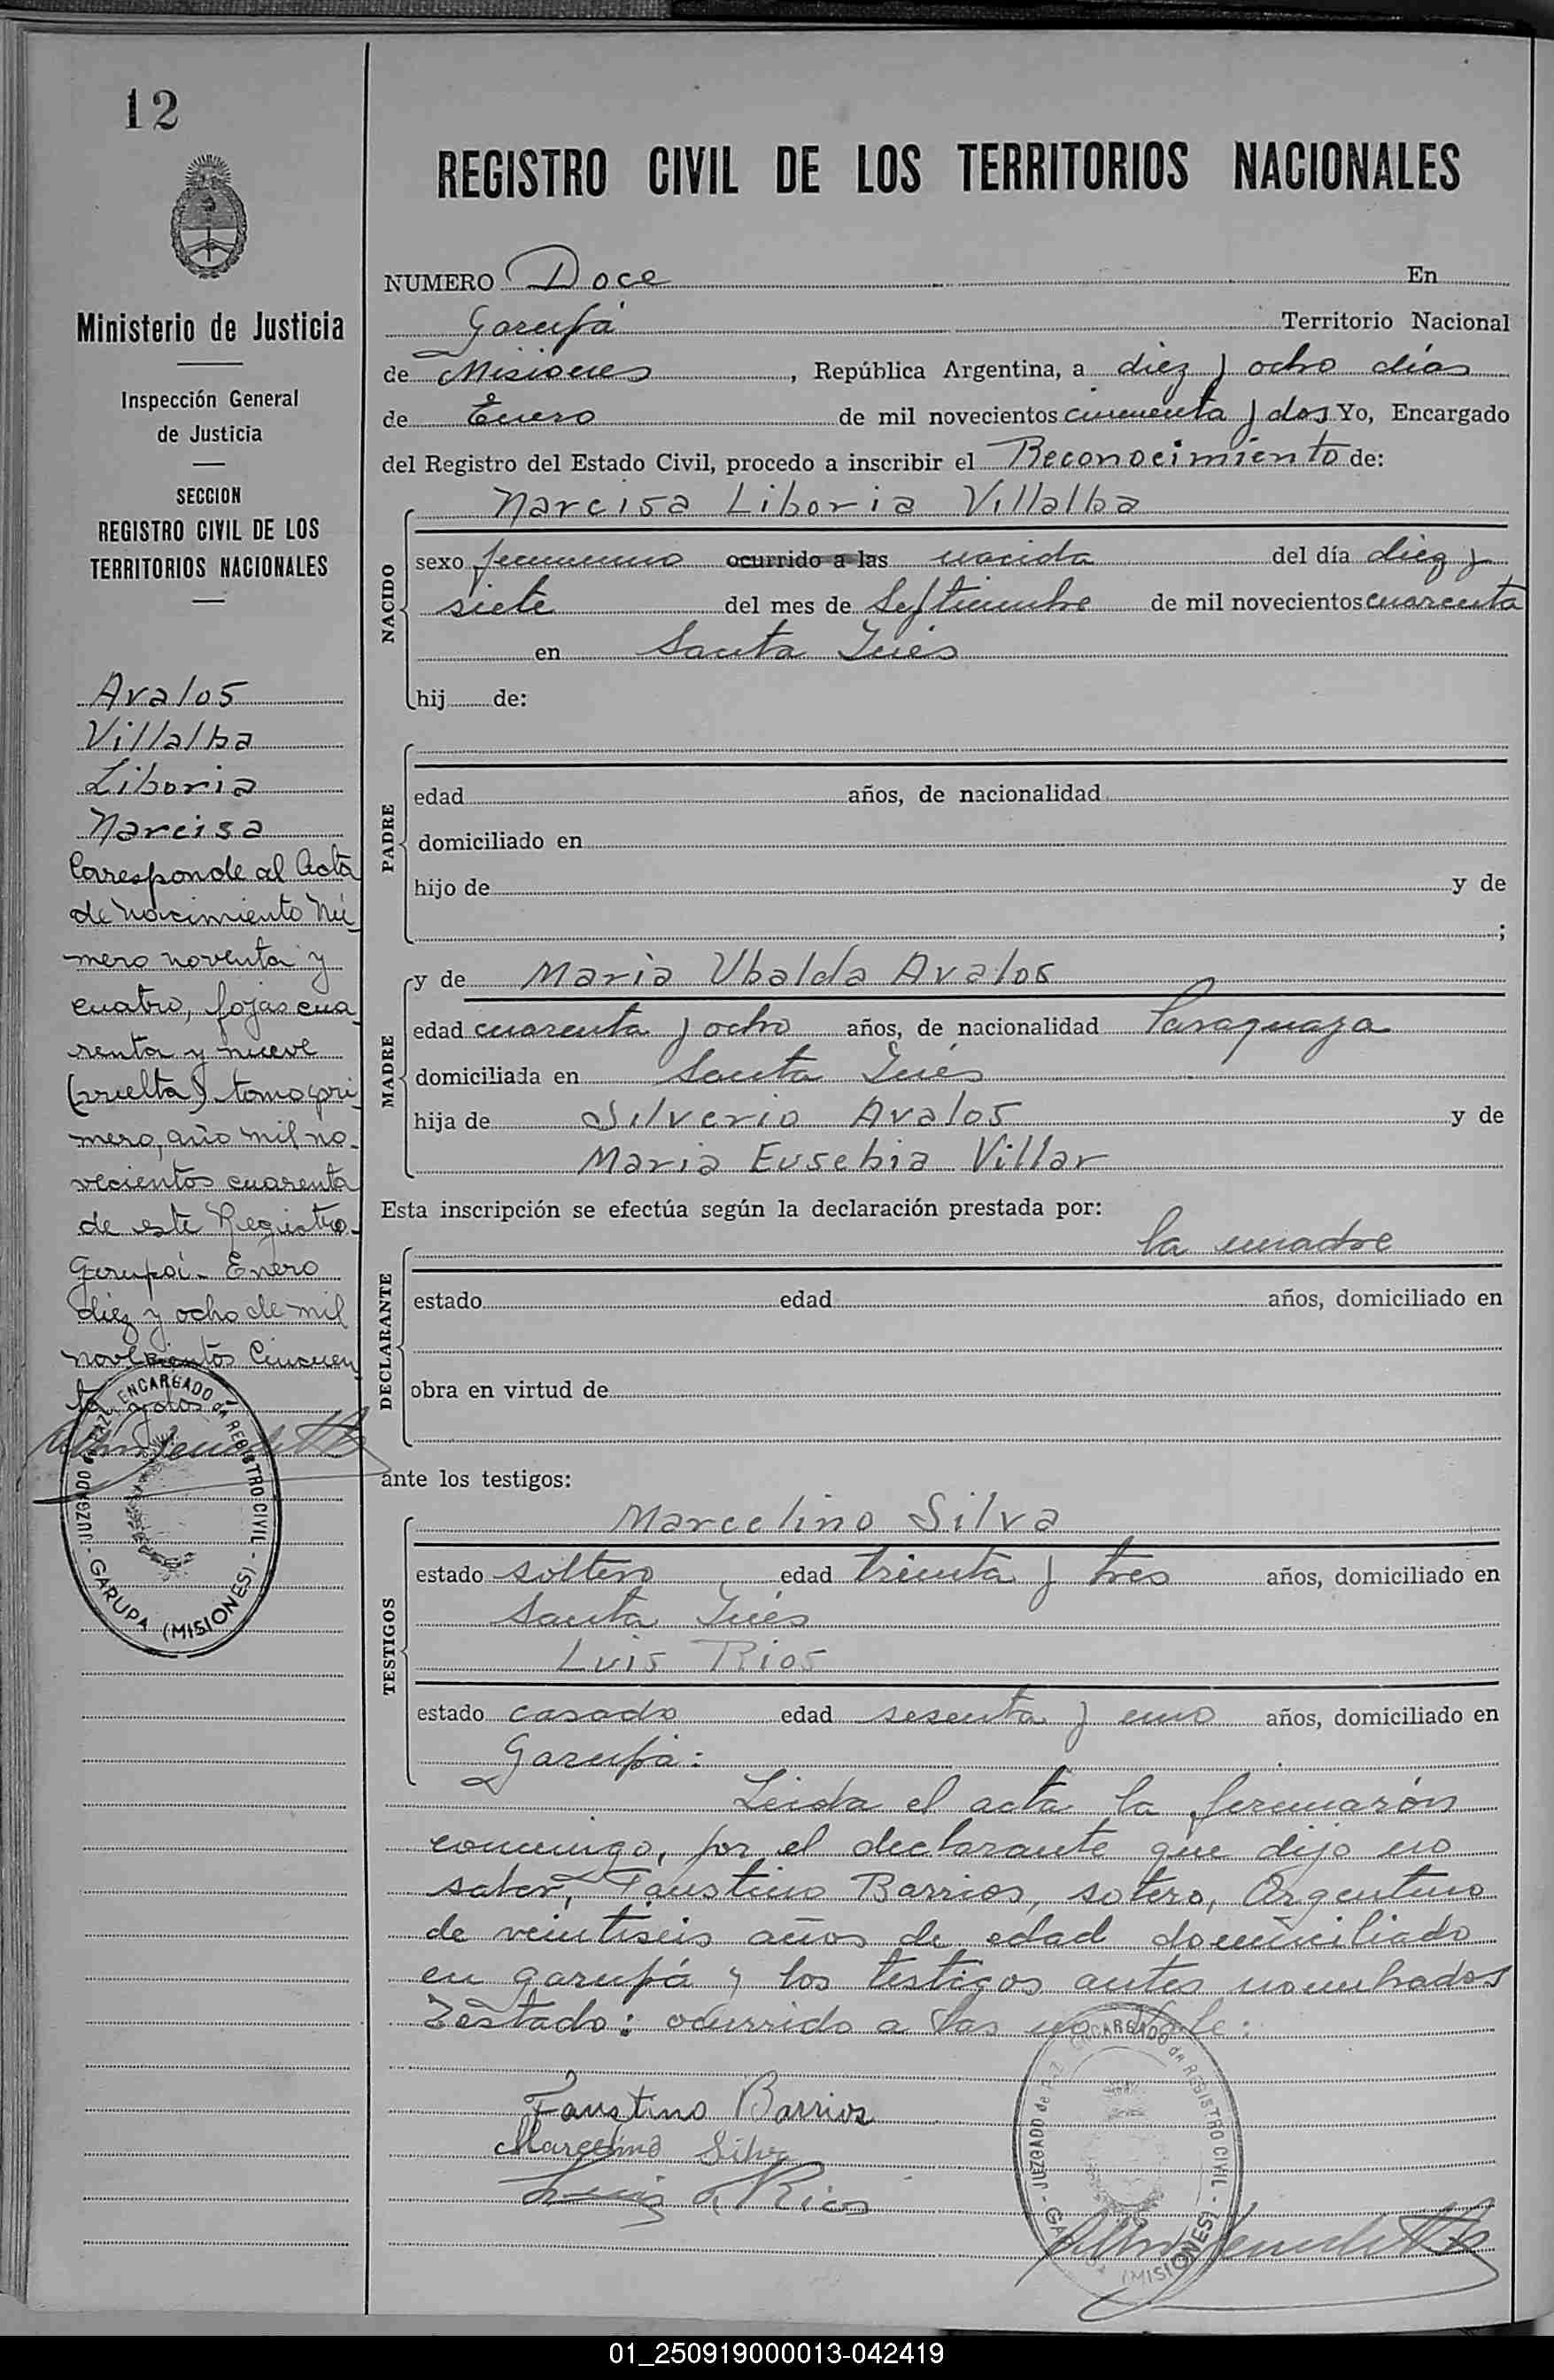 12
Ministerio de Justicia
Inspección General
de Justicia
SECCION
REGISTRO CIVIL DE LOS
TERRITORIOS NACIONALES
Avalos
Villalba
Liboria
Narcisa
Corresponde al Acta
de Nacimiento Nú
mero noventa y
cuatro, fojas cua
renta y nueve
(vuelta) tomo pri
mero, año mil no-
vecientos cuarenta
de este Registro.-
Garupá- Enero
diez y ocho de mil
novecientos Cincuen
ta y dos
JUZGADO de PAZ ENCARGADO del REGISTRO CIVIL - GARUPA (MISIONES) -
REGISTRO CIVIL DE LOS TERRITORIOS NACIONALES
NUMERO Doce En
Garupá Territorio Nacional
de Misiones, República Argentina, a diez y ocho días
de Enero de mil novecientos cincuenta y dos Yo, Encargado
del Registro del Estado Civil, procedo a inscribir el Reconocimiento de:
NACIDO
Narcisa Liboria Villalba
sexo femenino ocurrido a las nacida del día diez y
siete del mes de Septiembre de mil novecientos cuarenta
en Santa Inés
hij de:
PADRE
edad años, de nacionalidad
domiciliado en
hijo de y de
;
MADRE
y de Maria Ubalda Avalos
edad cuarenta y ocho años, de nacionalidad Paraguaya
domiciliada en Santa Inés
hija de Silverio Avalos y de
Maria Eusebia Villar
Esta inscripción se efectúa según la declaración prestada por:
DECLARANTE
la madre
estado edad años, domiciliado en
obra en virtud de
ante los testigos:
TESTIGOS
Marcelino Silva
estado soltero edad treinta y tres años, domiciliado en
Santa Inés
Luis Rios
estado casado edad sesenta y uno años, domiciliado en
Garupá:
Leida el acta la firmarón
conmigo, por el declarante que dijo no
saber, Faustino Barrios, sotero, Argentino
de veintiseis años de edad domiciliado
en garupá y los testigos antes nombrados
Testado: ocurrido a las no Vale:
Faustino Barrios
Marcelino Silva
Luis Rios
JUZGADO de PAZ ENCARGADO del REGISTRO CIVIL - GARUPA (MISIONES) -
01_250919000013-042419